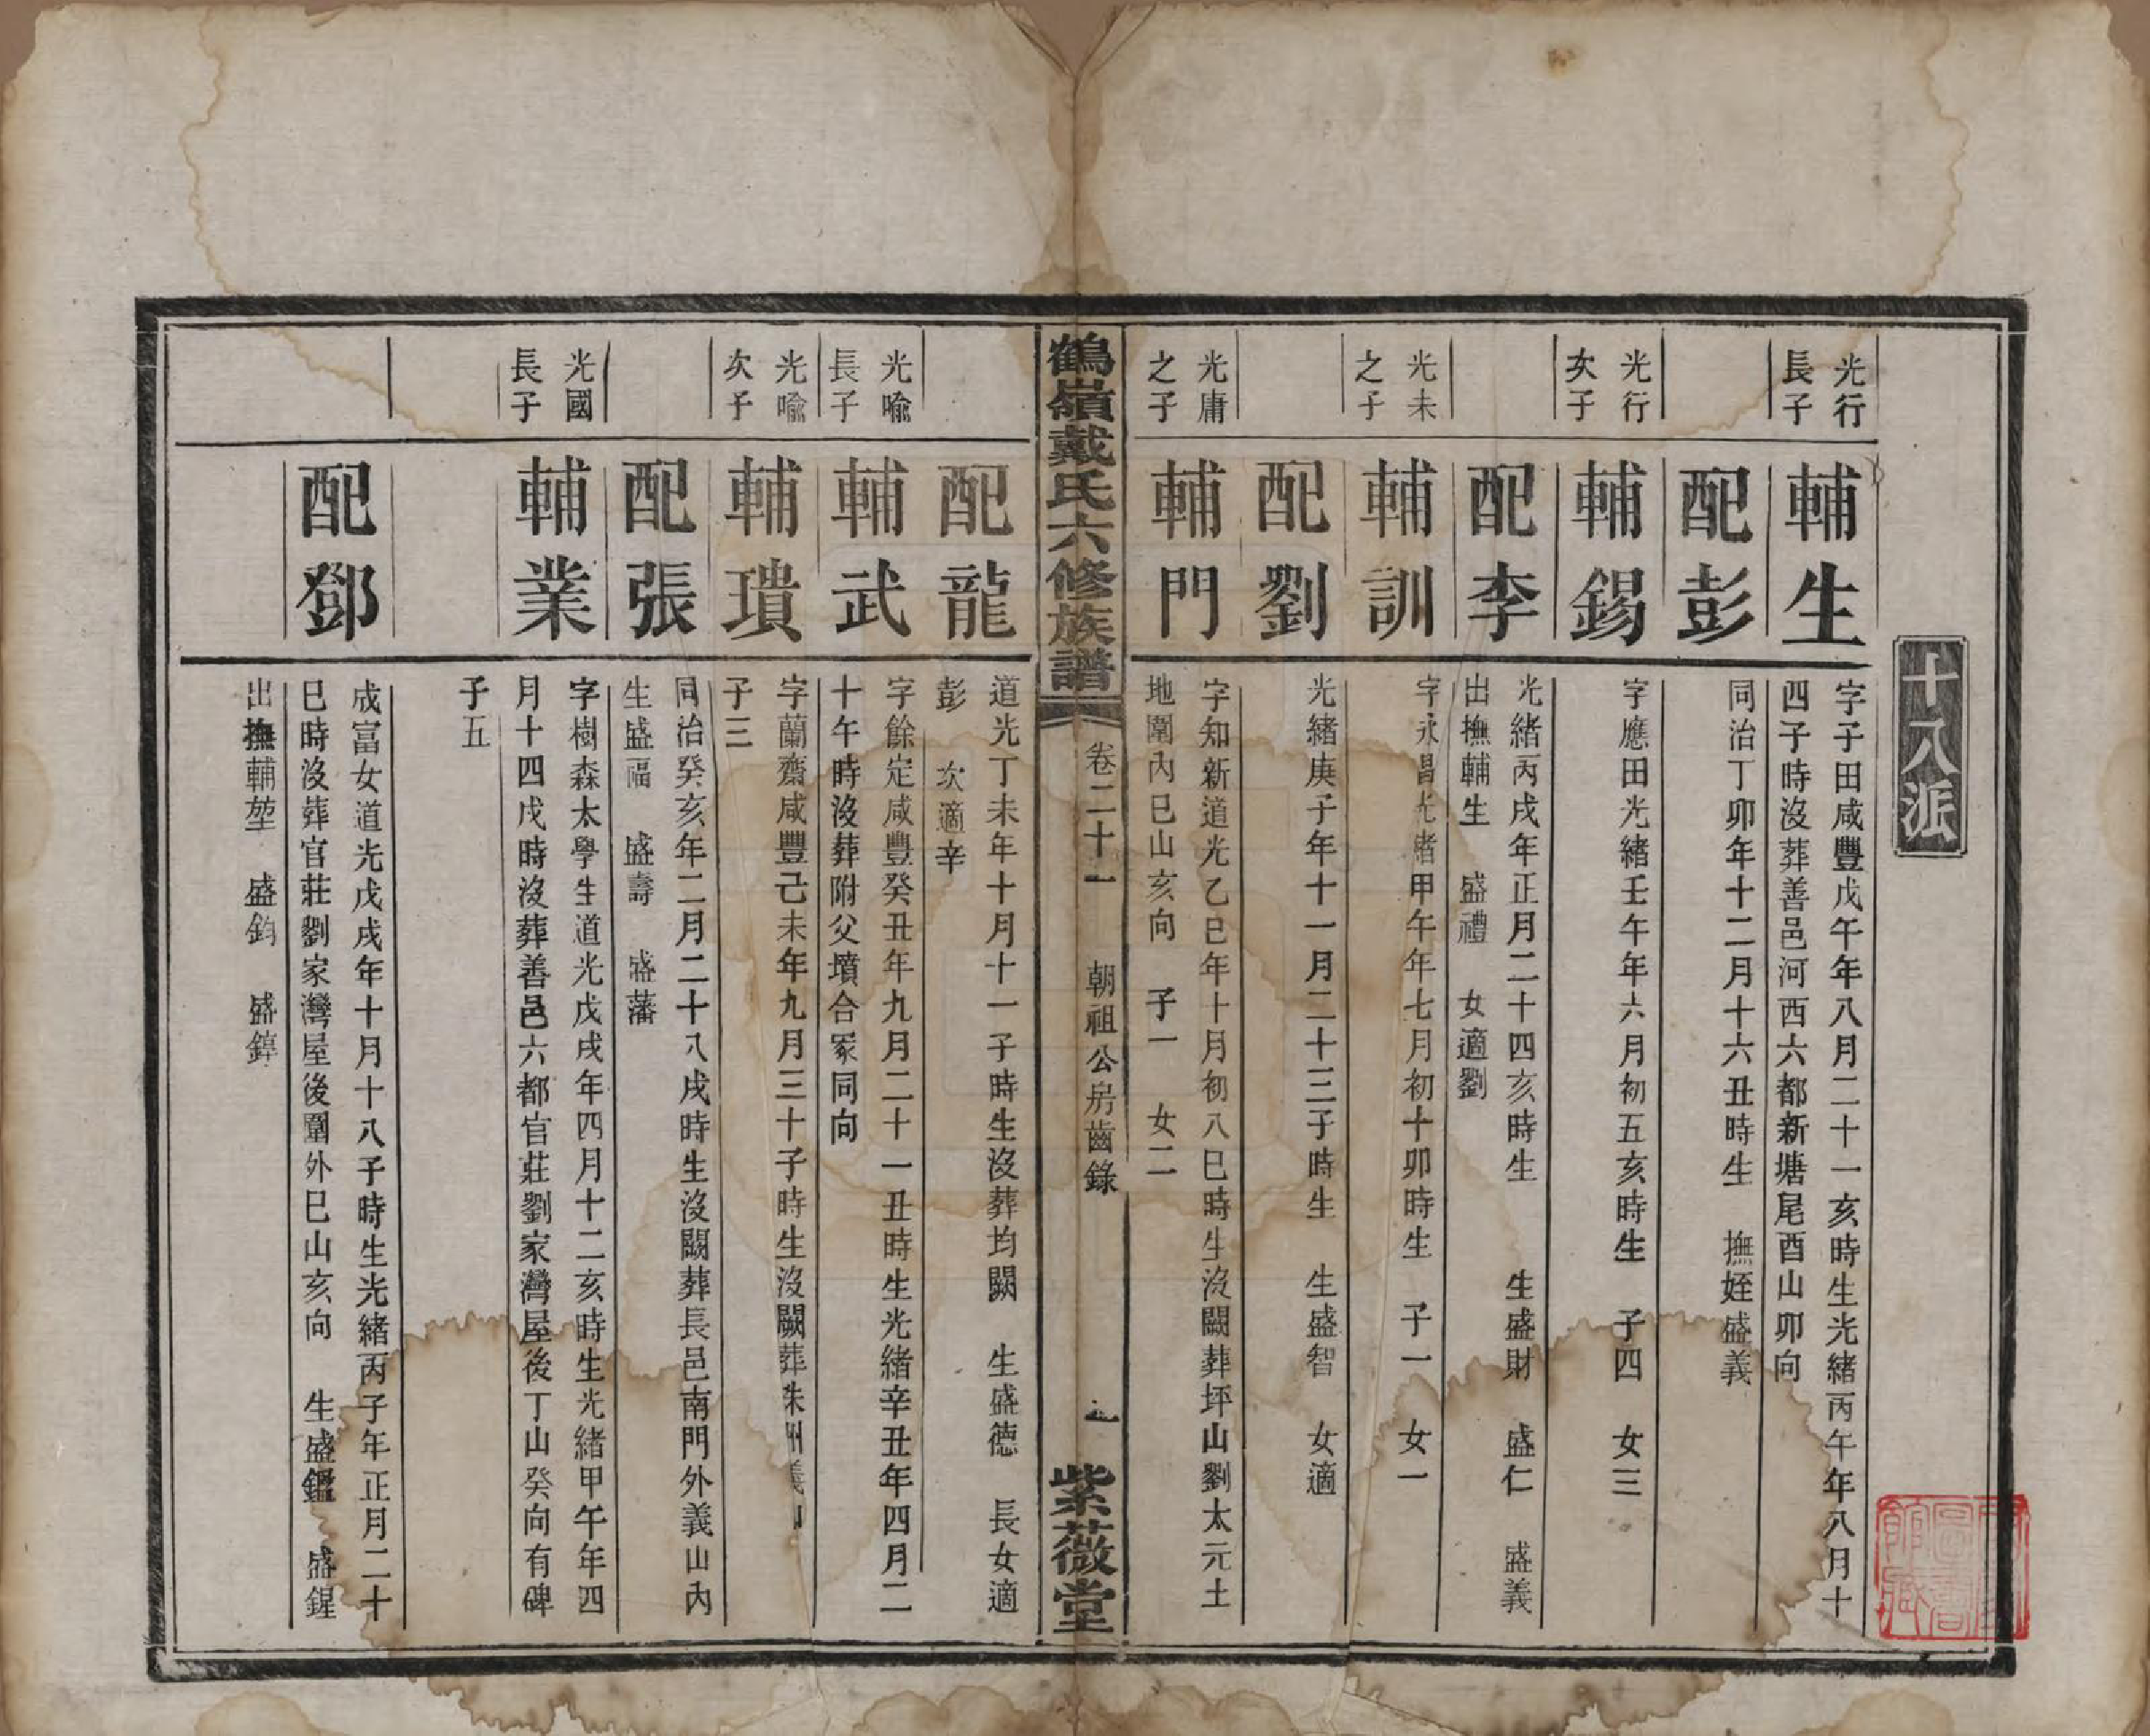 十八派
光行
長子
輔生
字子田咸豐戊午年八月二十一亥時生光緒丙午年八月十
四子時沒葬善邑河西六都新塘尾酉山卯向
配彭
同治丁卯年十二月十六丑時生 撫姪盛義
光行
次子
輔錫
字應田光緒壬午年六月初五亥時生 子四 女三
配李
光緒丙戌年正月二十四亥時生 生盛財 盛仁 盛義
出撫輔生 盛禮 女適劉
光未
之子
輔訓
字永昌光緒甲午年七月初十卯時生 子一 女一
配劉
光緒庚子年十一月二十三子時生 生盛智 女適
光庸
之子
輔門
字知新道光乙巳年十月初八巳時生沒闕葬坪山劉太元土
地圍內巳山亥向 子一 女二
鶴嶺戴氏六修族譜
卷二十一 朝祖公房齒錄
紫薇堂
配龍
道光丁未年十月十一子時生沒葬均闕 生盛德 長女適
彭 次適辛
光喩
長子
輔武
字餘定咸豐癸丑年九月二十一丑時生光緒辛丑年四月二
十午時沒葬附父墳合冢同向
光喩
次子
輔璝
字蘭齋咸豐己未年九月三十子時生沒闕葬株洲義山
子三
配張
同治癸亥年二月二十八戌時生沒闕葬長邑南門外義山內
生盛福 盛壽 盛藩
光國
長子
輔業
字樹森太學生道光戊戌年四月十二亥時生光緒甲午年四
月十四戌時沒葬善邑六都官莊劉家灣屋後丁山癸向有碑
子五
配鄧
成富女道光戊戌年十月十八子時生光緒丙子年正月二十
巳時沒葬官莊劉家灣屋後圍外巳山亥向 生盛鑑 盛鍟
出撫輔堃 盛鈞 盛錞